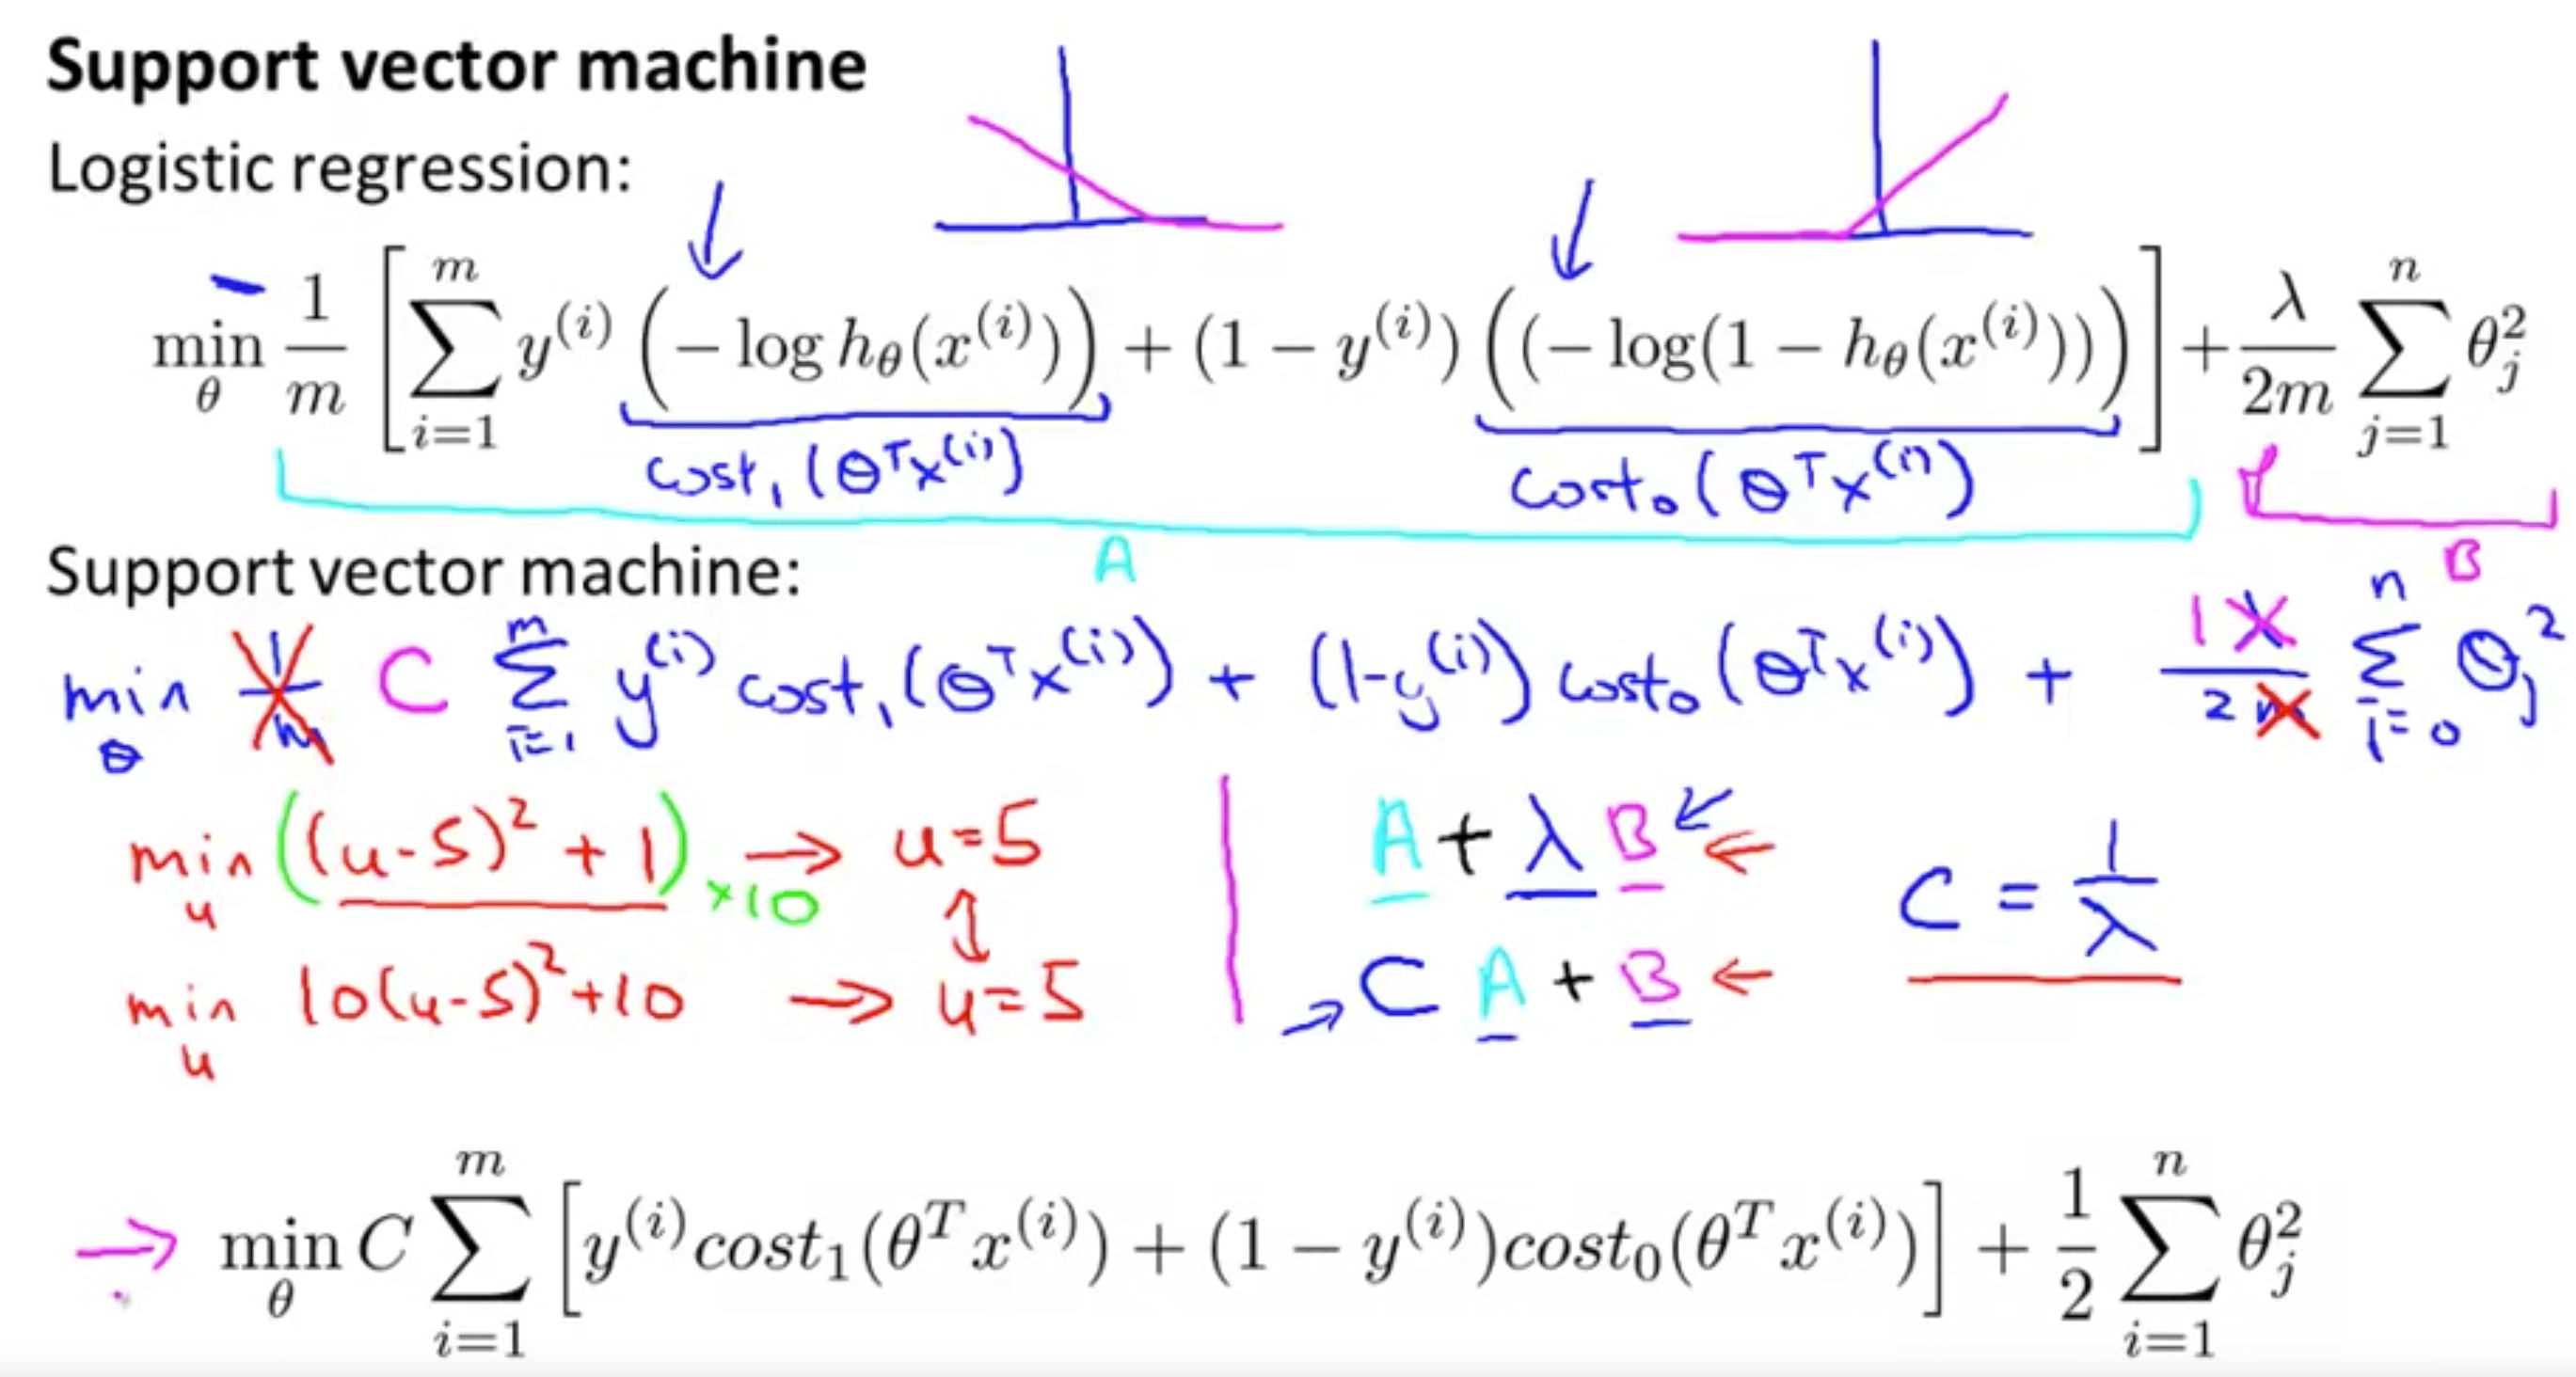 Support vector machine
Logistic regression:
− min_θ 1/m [ ∑_{i=1}^{m} y^{(i)} ( − log h_θ(x^{(i)}) ) + (1 − y^{(i)}) ( (− log(1 − h_θ(x^{(i)}))) ) ] + λ/2m ∑_{j=1}^{n} θ_j^2
cost_1 (θ^T x^{(i)}) cost_0 (θ^T x^{(i)})
A B
Support vector machine:
min_θ 1/m C ∑_{i=1}^{m} y^{(i)} cost_1 (θ^T x^{(i)}) + (1-y^{(i)}) cost_0 (θ^T x^{(i)}) + 1 λ/2m ∑_{i=0}^{n} θ_j^2
min_u ((u-5)^2 + 1) ×10 → u=5
A + λ B ↙ ←
C = 1/λ
↕
min_u 10(u-5)^2+10 → u=5
→ C A + B ←
→ min_θ C ∑_{i=1}^{m} [ y^{(i)}cost_1(θ^T x^{(i)}) + (1 − y^{(i)})cost_0(θ^T x^{(i)}) ] + 1/2 ∑_{i=1}^{n} θ_j^2